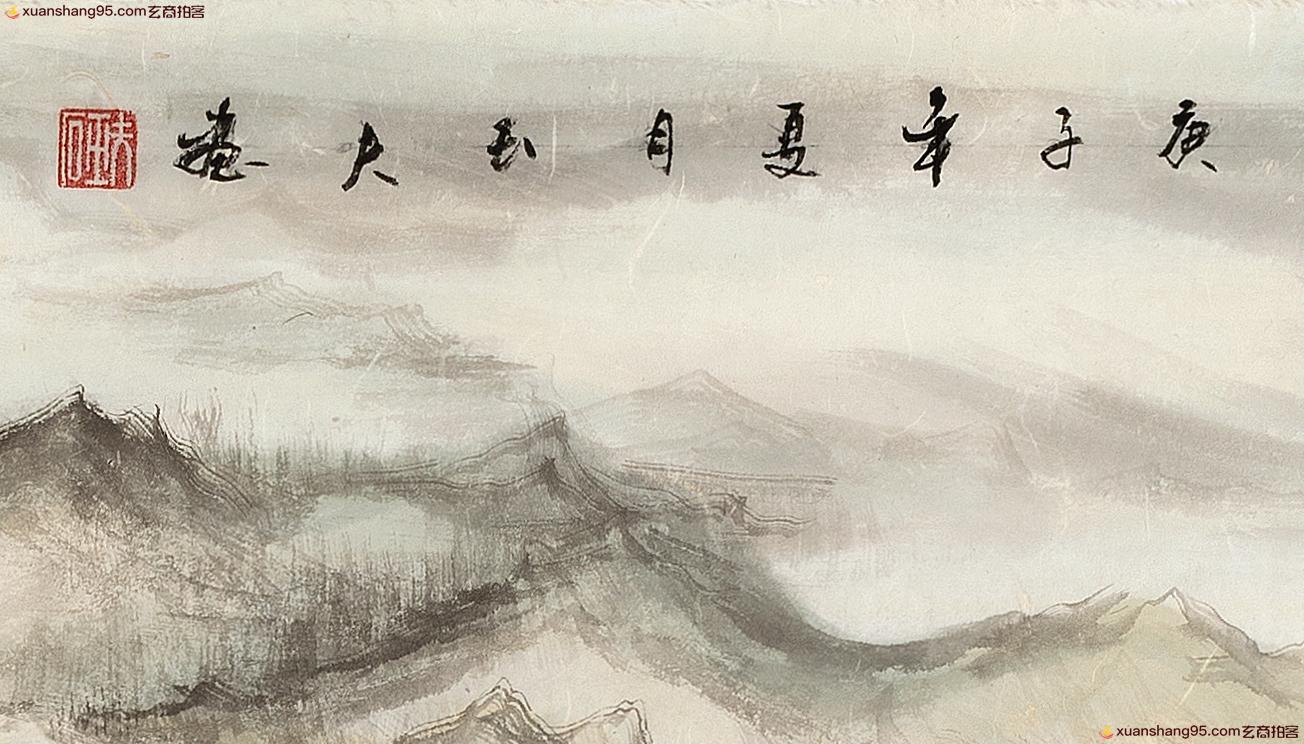 xuanshang95.com玄商拍客
庚子年夏月夫畫
xuanshang95.com玄商拍客